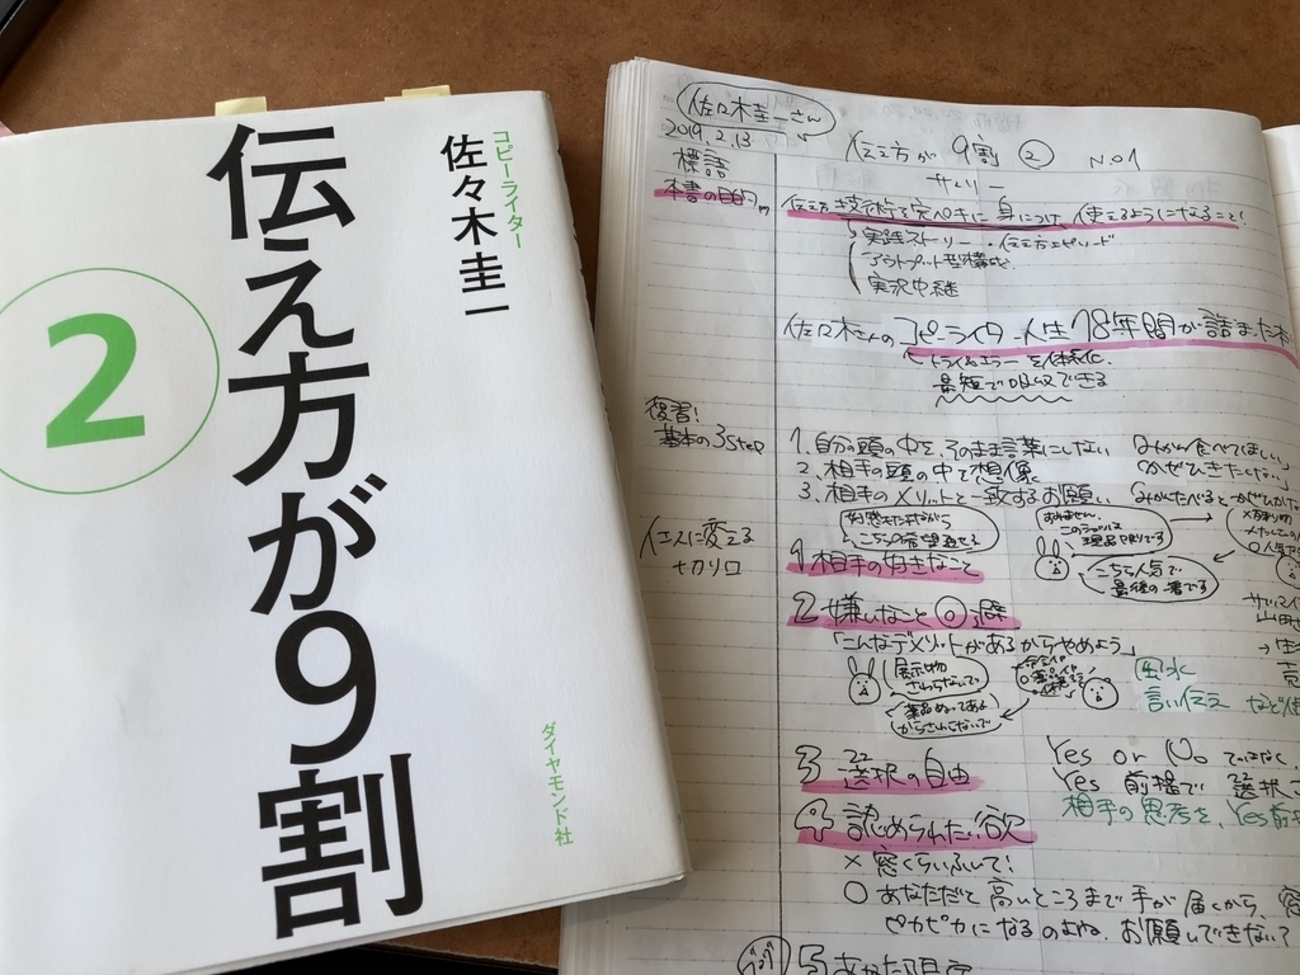 伝え方が9割
2
コピーライター
佐々木圭一
ダイヤモンド社
佐々木圭一さん
2019.2.13
伝え方が 9割 ② No.1
標語
本書の目的
伝え方技術を完ペキに身につけ、使えるようになること!
実践ストーリー・伝え方エピソード
アウトプット型構成
実況中継
佐々木さんのコピーライター人生18年間が詰まった本
トライ&エラーを体系化.
最短で吸収できる
復習!
基本の3step
1.自分の頭の中を、そのまま言葉にしない
2.相手の頭の中を想像
3.相手のメリットと一致するお願い
みかん食べてほしい」
「かぜひきたくない」
みかんたべるとかぜひかな
イエスに変える
切り口
すみません
このシャツは
現品限りです
こちら人気で
最後の一着です
1 相手の好きなこと
2 嫌いなこと回避
「こんなデメリットがあるからやめよう」
展示物
さわらないで
薬品ぬってある
からさわらないで
風水
言い伝え など
3 選択の自由
Yes or No ではなく、
Yes 前提で 選択
相手の思考を、Yes前
4 認められたい欲
× 窓くらいふいて!
○ あなただと高いところまで手が届くから、窓
ピカピカになるのよね。お願いできない?
5 あなた限定